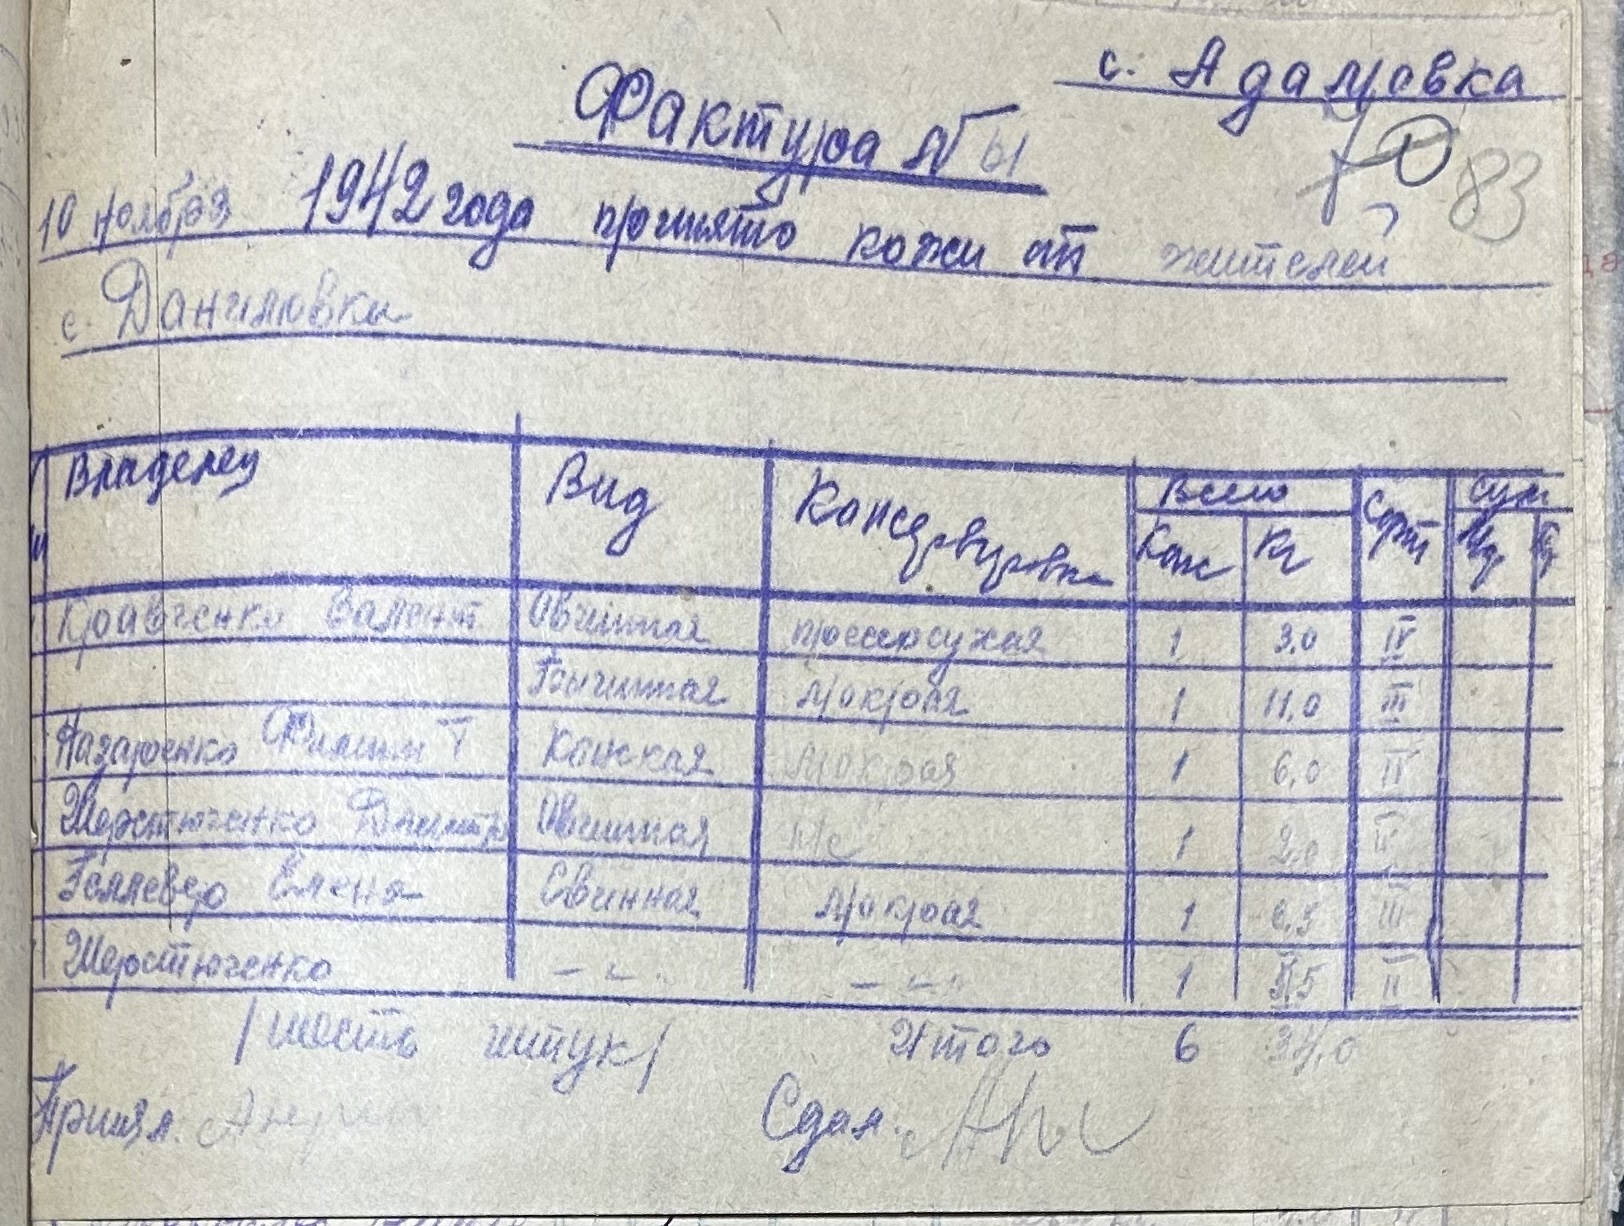 с. Адамовка
Фактура №61
83
10 ноября 1942 года принято кожи от жителей
с. Даниловки
Владелец Вид Консервировка Всего Сорт Сум
Кож Кг
Кравченко Валент. Овчиная пресносухая 1 3.0 IV
Бычиная мокрая 1 11.0 III
Назаренко Филип Т Конская мокрая 1 6.0 IV
Шерстюченко Дмитр Овчиная п/с 1 2.0
Елена Свинная мокрая 1 6.5 III
Шерстюченко – " – – " – 1 5.5 II
/шесть штук/ Итого 6 34,0
Принял. Сдал.